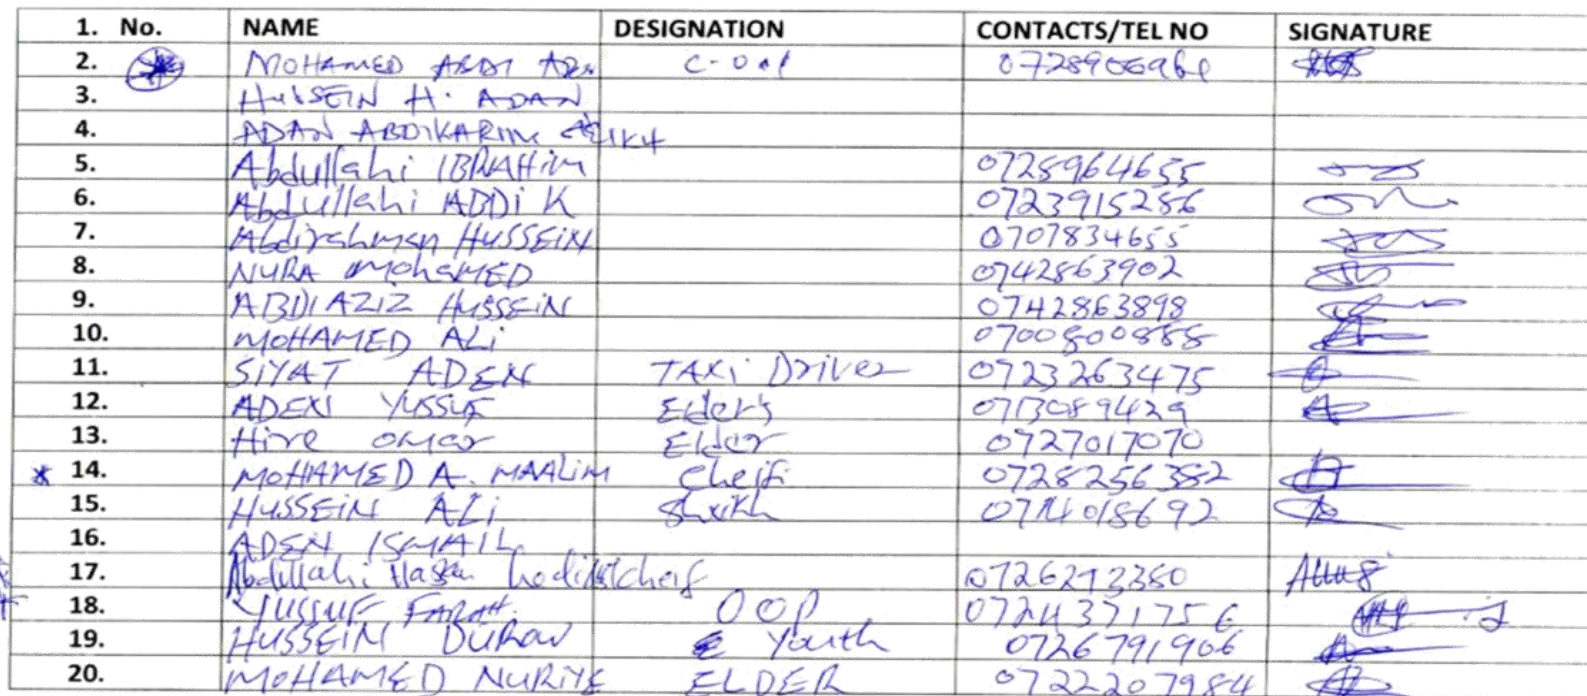 1. No. NAME DESIGNATION CONTACTS/TEL NO SIGNATURE
2. MOHAMED ABDI
3. HUSSEIN H. ADAN
4. ADAN ABDIKARIM
5. Abdullahi IBRAHIM 0728964655
6. Abdullahi ABDi K 0723915286
7. Abdirahman HUSSEIN 0707834655
8. NURA MOhaMED 0742863902
9. ABDIAZIZ HUSSEiN 0742863898
10. MOHAMED ALi 0700800888
11. SIYAT ADEN TAXi Driver 0723263475
12. ADEN YUSSUF Elders 0713089429
13. Hire omar Elder 0727017070
14. MOHAMED A. MAALIM Cheif 0728256382
15. HUSSEiN ALi Sheikh
16. ADEN ISMAIL
17. Abdullahi Hassan
18. YUSSUF FARAH. OOP 0724371756
19. HUSSEIN Youth 0726791906
20. MOHAMED NURiYE ELDER 0722207984